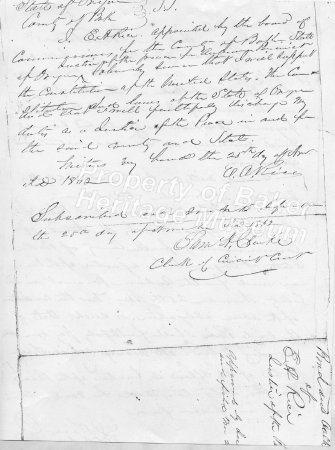 State of Oregon
County of Bak } S.S.
I E A Rice, appointed by the board of
Commissioners for the County of Baker State
of Oregon Justice of the peace in
solemnly swear that I will support
the Constitution of the United States, the Constitution
and laws of the State of Oregon
and that I will faithfully discharge my
duties as a Justice of the Peace in and for
the said county and State.
Witness my hand the 25th day of Nov
A.D. 1862
E A Rice
Subscribed and sworn to before me
the 25th day of Nov
Sam A Clarke
Clerk of Circuit Court
Bond and Oath
of
E A Rice
Justice of the
Approved by
Property of Baker
Heritage Museum